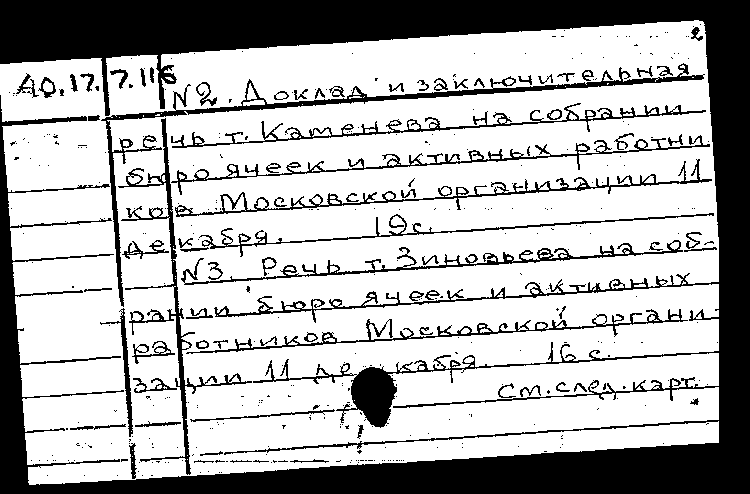 2
А0.17.7.116
N2. Доклад и заключительная
речь т. Каменева на собрании
бюро ячеек и активных работни
ков Московской организации 11
декабря. 19с.
N3. Речь т. Зиновьева на соб-
рании бюро ячеек и активных
работников Московской органи
зации 11 декабря. 16с.
см. след. карт.